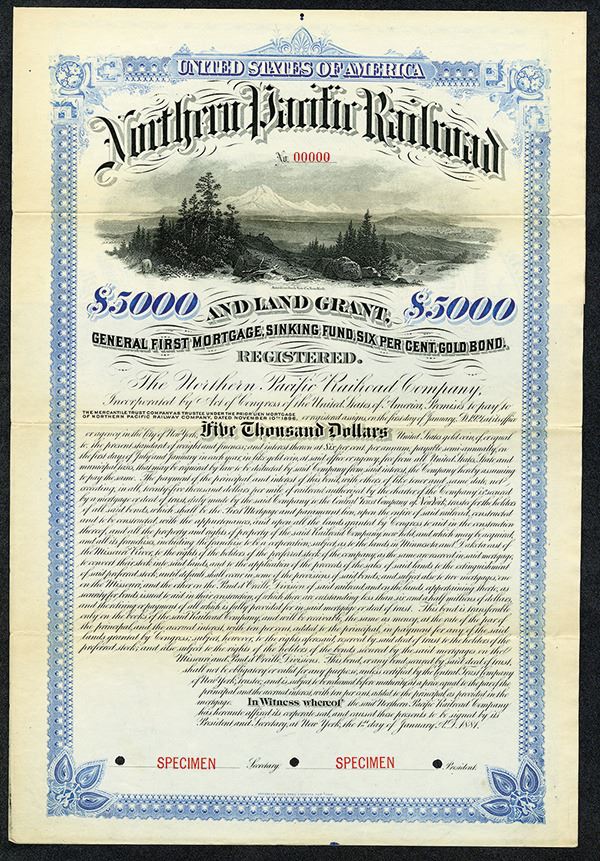 UNITED STATES OF AMERICA
Northern Pacific Railroad
No. 00000
$5000 AND LAND GRANT, $5000
GENERAL FIRST MORTGAGE, SINKING FUND, SIX PER CENT. GOLD BOND.
REGISTERED.
The Northern Pacific Railroad Company,
Incorporated by Act of Congress of the United States of America, Promises to pay to
THE MERCANTILE TRUST COMPANY AS TRUSTEE UNDER THE PRIOR LIEN MORTGAGE
OF NORTHERN PACIFIC RAILWAY COMPANY, DATED NOVEMBER 10TH 1896, or registered assigns, on the first day of January, A.D. 1921, at its office
or agency in the City of New York, Five Thousand Dollars United States gold coin, of or equal
to the present standard of weight and fineness, and interest thereon at six per cent. per annum, payable semi-annually, on
the first days of July and January, in each year, in like gold coin, at said office or agency, free from all United States, State and
municipal taxes, that may be required by law to be deducted by said Company from said interest, the Company hereby assuming
to pay the same. The payment of the principal and interest of this bond, with others of like tenor and same date, not
exceeding, in all, twenty five thousand dollars per mile of railroad authorized by the charter of the Company is secured
by a mortgage or deed of trust, duly made by said Company to the Central Trust Company of New York, trustee for the holders
of all said bonds, which shall be the First Mortgage and paramount lien, upon the entire of said railroad, constructed
and to be constructed, with the appurtenances, and upon all the lands granted by Congress to aid in the construction
thereof, and all the property and rights of property of the said Railroad Company now held, and which may be acquired,
and all its franchises, including the franchise to be a corporation; subject, as to the lands in Minnesota and Dakota east of
the Missouri River, to the rights of the holders of the preferred stock of the company, as the same are reserved in said mortgage,
to convert their stock into said lands, and to the application of the proceeds of the sales of said lands to the extinguishment
of said preferred stock, until default shall occur in some of the provisions of said bonds, and subject also to two mortgages, one
on the Missouri, and the other on the Pend d'Oreille Divisions of said railroad and on the lands appertaining thereto, as
security for bonds issued to aid in their construction, of which there are outstanding less than six and a half millions of dollars,
and the retiring or payment of all which is fully provided for in said mortgage or deed of trust. This bond is transferable
only on the books of the said Railroad Company, and will be receivable, the same as money, at the rate of the par of
the principal, and the accrued interest, with ten per cent. added to the principal, in payment for any of the said
lands granted by Congress; subject, however, to the rights aforesaid, reserved by said deed of trust to the holders of the
preferred stock; and also subject to the rights of the holders of the bonds secured by the said mortgages on the
Missouri and Pend d'Oreille Divisions. This bond, or any bond secured by said deed of trust,
shall not be obligatory or valid for any purpose, unless certified by the Central Trust Company
of New York, trustee; and is subject to be retained before maturity at a price equal to the par of the
principal and the accrued interest, with ten per cent. added to the principal as provided in the
mortgage. In Witness whereof the said Northern Pacific Railroad Company
has hereunto affixed its corporate seal, and caused these presents to be signed by its
President and Secretary, at New York, the 1st day of January, A.D. 1881.
SPECIMEN Secretary. SPECIMEN President.